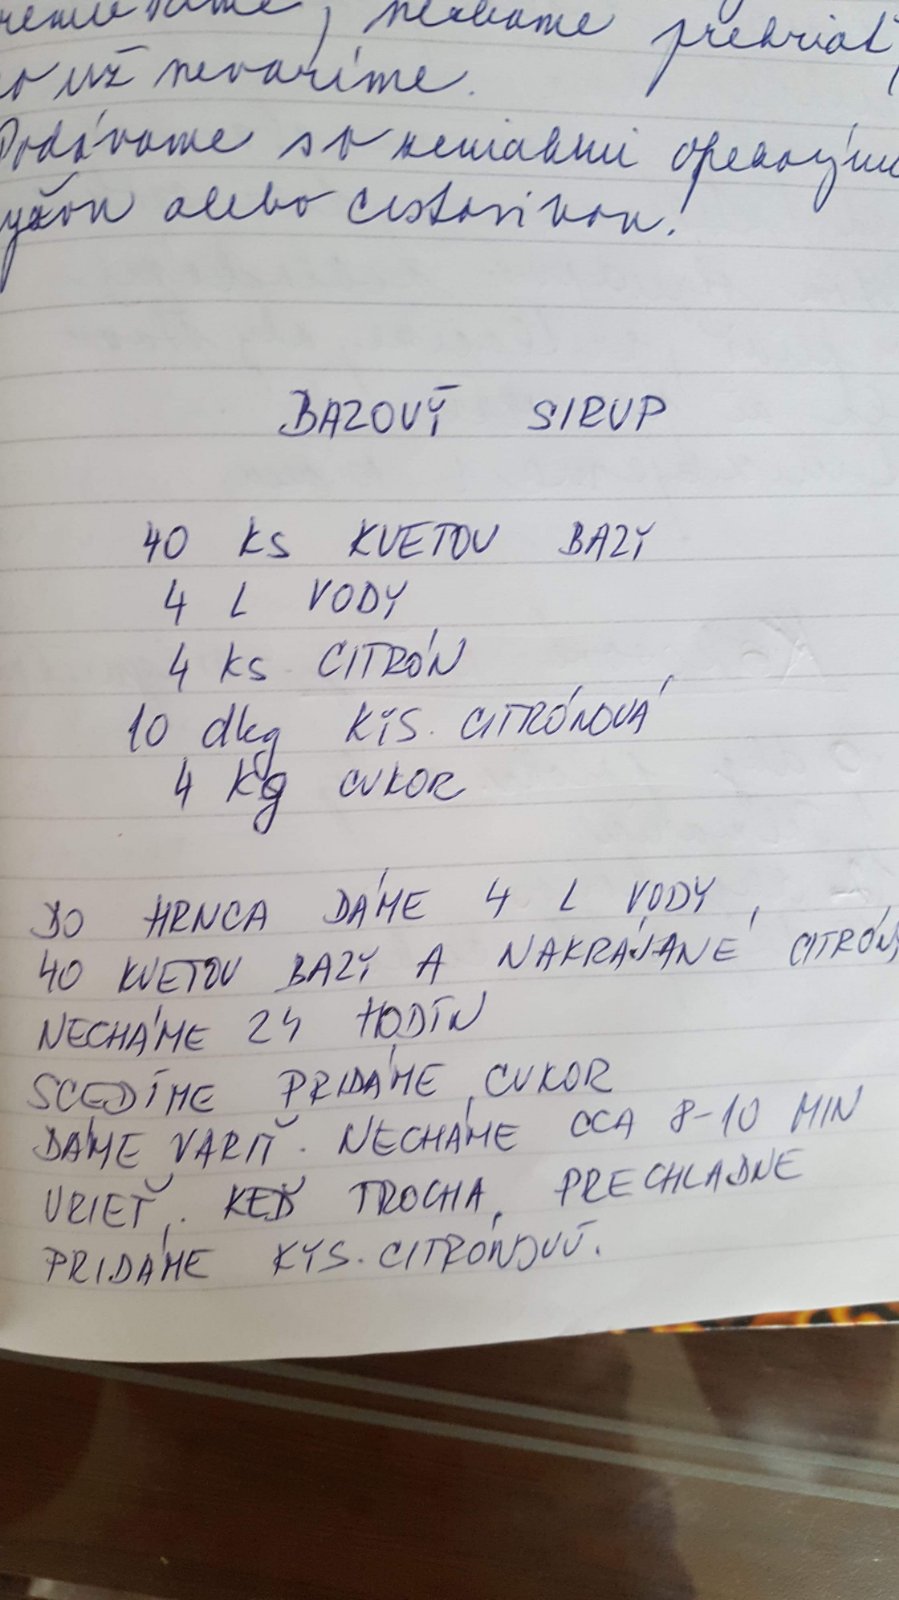 , nechame prehriať,
už nevaríme.
Podávame so zemiakmi opekanými
alebo cestovinou!
BAZOVÝ SIRUP
40 KS KVETOV BAZY
4 L VODY
4 KS CITRÓN
10 dkg KYS. CITRÓNOVÁ
4 Kg CUKOR
DO HRNCA DÁME 4 L VODY,
40 KVETOV BAZY A NAKRÁJANÉ CITRÓNY
NECHÁME 24 HODÍN
SCEDÍME PRIDÁME CUKOR
DÁME VARIŤ. NECHÁME CCA 8-10 MIN
VRIEŤ. KEĎ TROCHA PRECHLADNE
PRIDÁME KYS. CITRÓNOVÚ.